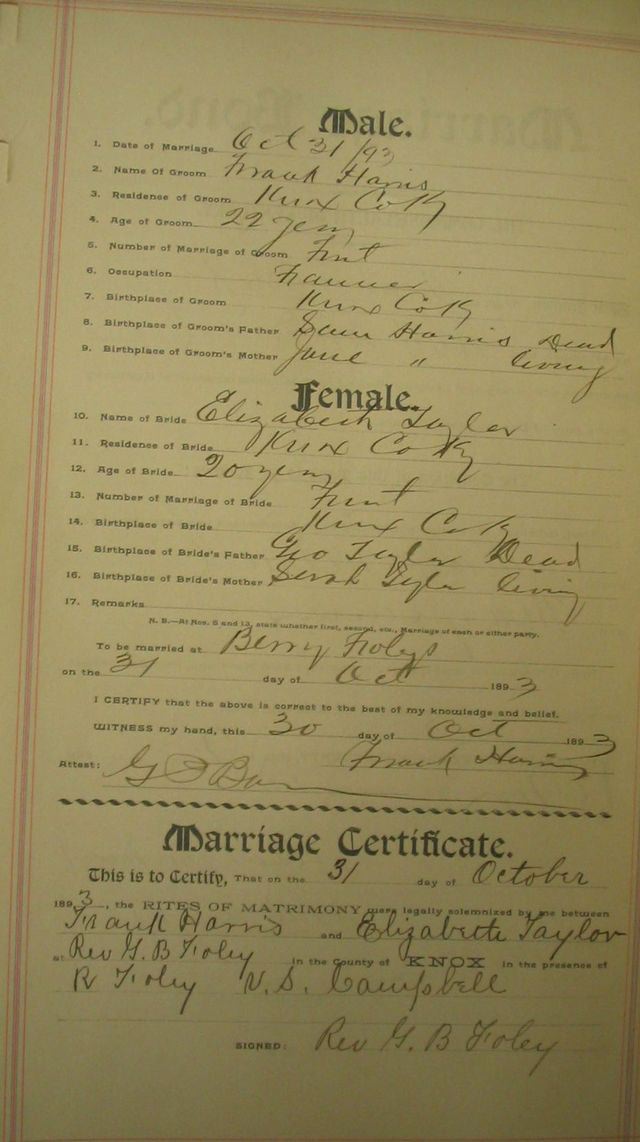 Male.
1. Date of Marriage Oct 31/93
2. Name of Groom Frank Harris
3. Residence of Groom Knox Co Ky
4. Age of Groom 22 years
5. Number of Marriage of Groom First
6. Occupation Farmer
7. Birthplace of Groom Knox Co Ky
8. Birthplace of Groom's Father Sam Harris Dead
9. Birthplace of Groom's Mother Jane " living
Female.
10. Name of Bride Elizabeth Taylor
11. Residence of Bride Knox Co Ky
12. Age of Bride 20 years
13. Number of Marriage of Bride First
14. Birthplace of Bride Knox Co Ky
15. Birthplace of Bride's Father Geo Taylor Dead
16. Birthplace of Bride's Mother Sarah Tyler living
17. Remarks
N. B.—At Nos. 5 and 13, state whether first, second, etc., Marriage of each or either party.
To be married at Berry Foleys
on the 31 day of Oct 1893
I CERTIFY that the above is correct to the best of my knowledge and belief.
WITNESS my hand, this 30 day of Oct 1893
Frank Harris
Attest: G
Marriage Certificate.
This is to Certify, That on the 31 day of October
1893, the RITES OF MATRIMONY were legally solemnized by me between
Frank Harris and Elizabeth Taylor
at Rev G. B Foley in the County of KNOX in the presence of
R Foley V. S. Campbell
SIGNED: Rev G. B Foley